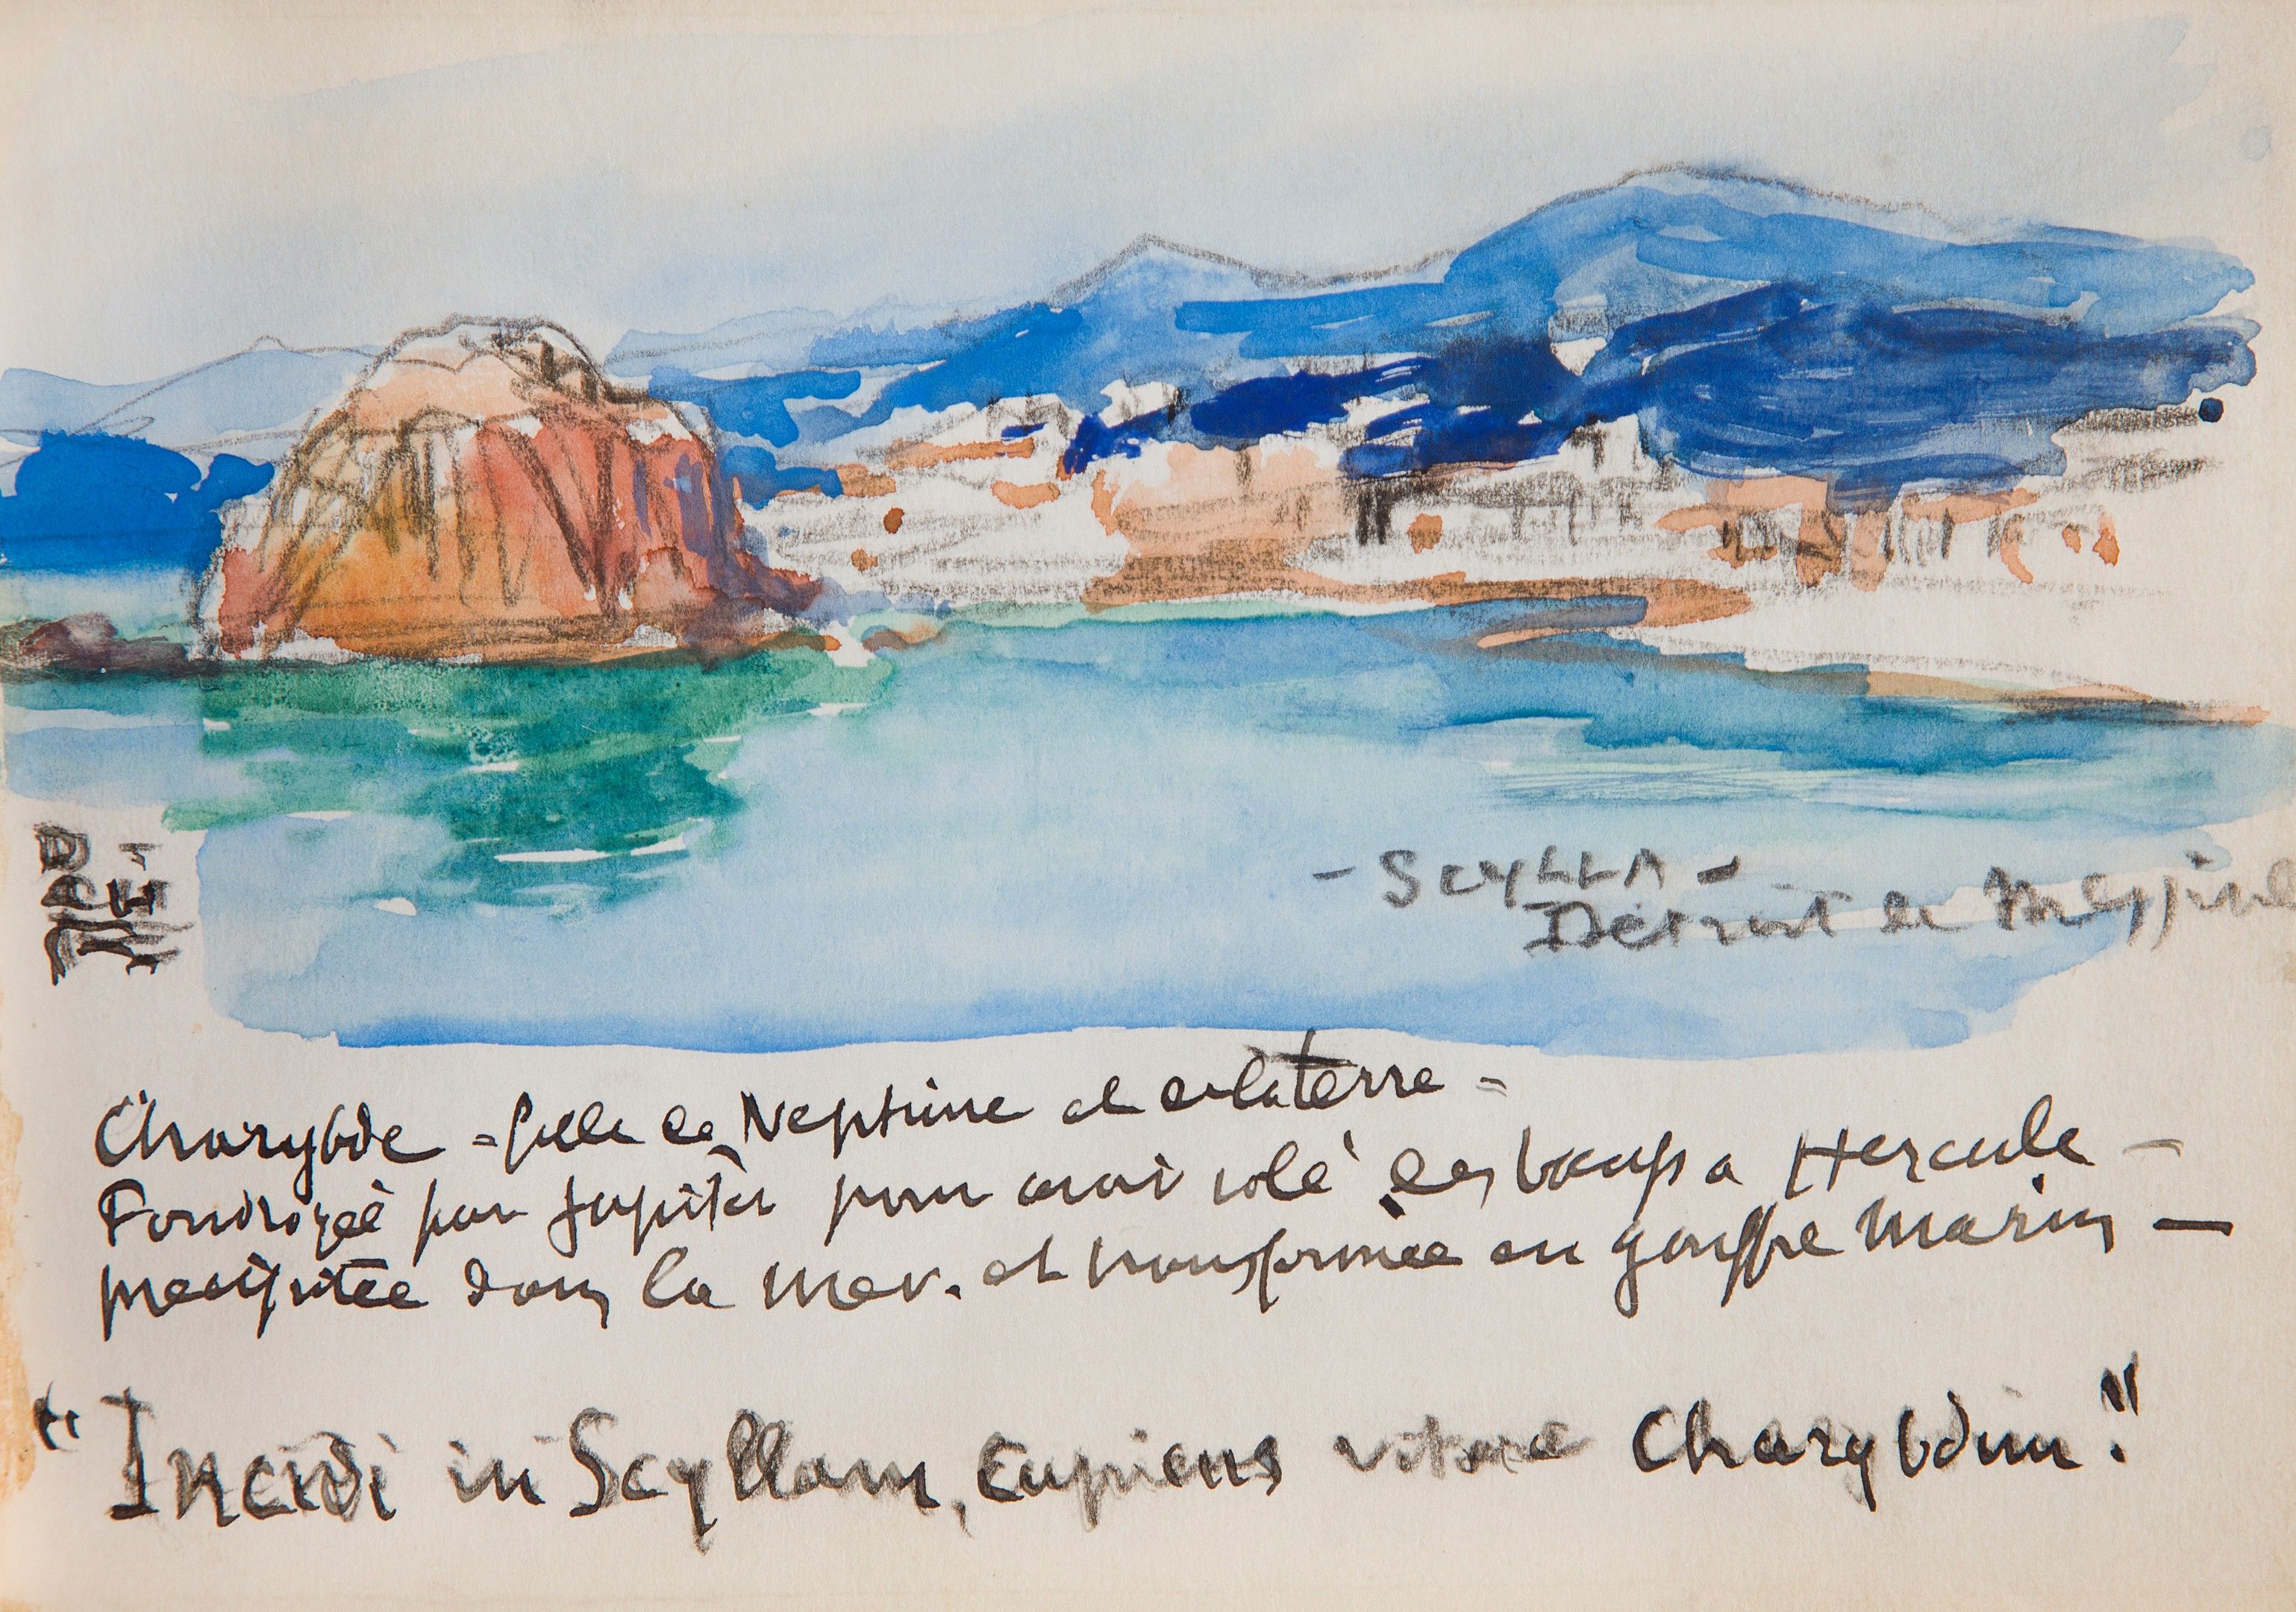 - SCYLLA -
Détroit de Messine
Charybde - fille de Neptune et de la terre -
Foudroyée par Jupiter pour avoir volé des bœufs a Hercule -
precipitée dans la mer. et transformée en gouffre marin -
"Incidi in Scyllam, cupiens vitare Charybdim."